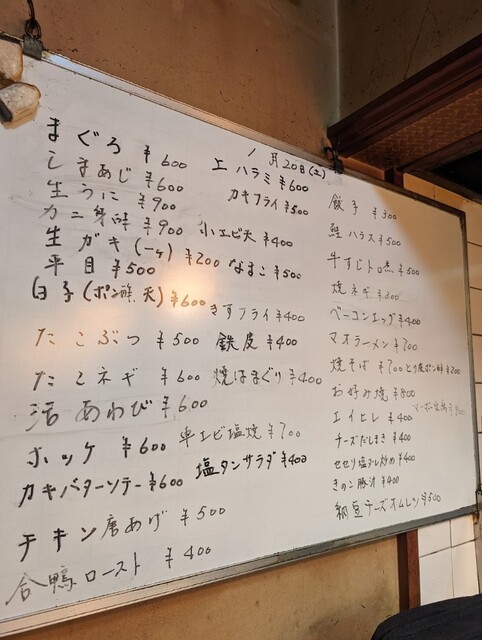 1月20日(土)
まぐろ ¥600
しまあじ ¥600
生うに ¥900
カニ身 ¥900
生ガキ(一ヶ) ¥200
平目 ¥500
白子(ポン酢 天) ¥600
たこぶつ ¥500
たこネギ ¥600
活あわび ¥600
ホッケ ¥600
カキバターソテー ¥600
チキン唐あげ ¥500
合鴨ロースト ¥400
上ハラミ ¥600
カキフライ ¥500
小エビ天 ¥400
なまこ ¥500
きすフライ ¥400
鉄皮 ¥400
焼はまぐり ¥400
車エビ塩焼 ¥700
塩タンサラダ ¥400
餃子 ¥300
鮭ハラス ¥500
牛すじトロ煮 ¥500
焼ネギ ¥300
ベーコンエッグ ¥400
マオラーメン ¥700
焼そば ¥700
とり皮ポン酢 ¥200
お好み焼 ¥800
エイヒレ ¥400
チーズだしまき ¥400
せせり塩ダレ炒め ¥400
きのこ豚汁 ¥400
納豆チーズオムレツ ¥500